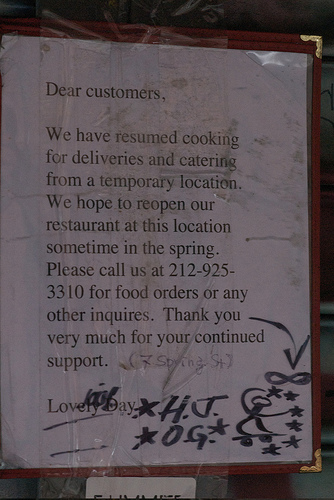 Dear customers,
We have resumed cooking
for deliveries and catering
from a temporary location.
We hope to reopen our
restaurant at this location
sometime in the spring.
Please call us at 212-925-
3310 for food orders or any
other inquires. Thank you
very much for your continued
support. (7 Spring St)
Lovely Day
H.J.
O.G.